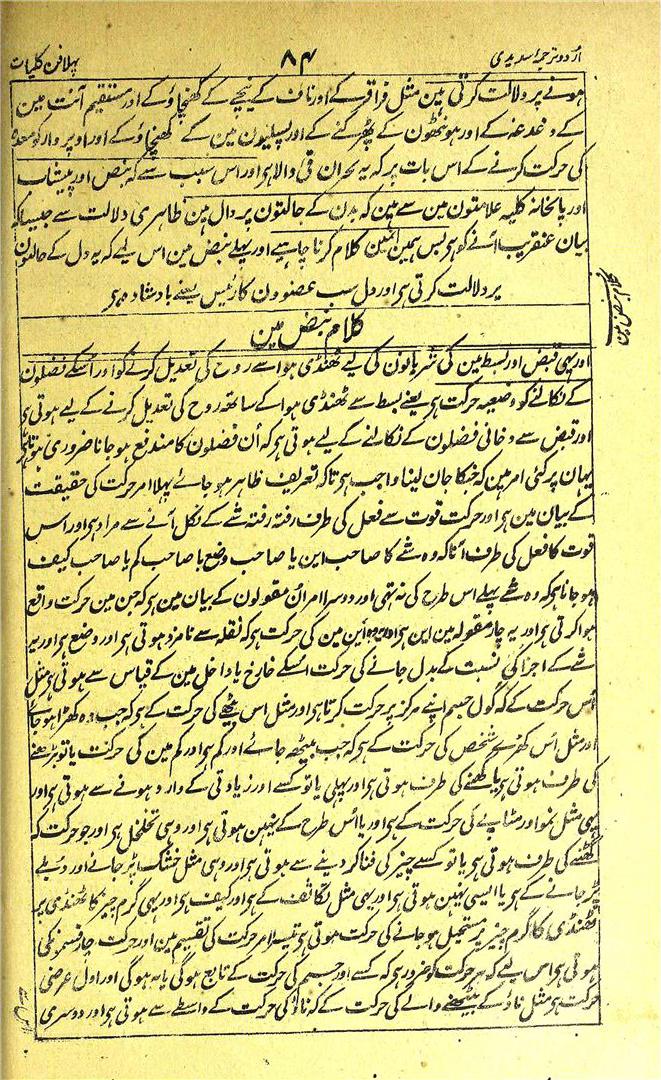 اردو ترجمہ سدیدی
۸۴
پہلا فن کلیات
ہونے پر دلالت کرتی ہین مثل فراقر کے اور ناف کے نیچے کے کھنچاؤ کے اور مستقیم آنت مین
کے دغدغہ کے اور ہونٹھون کے پھڑکنے کے اور پسلیون مین کے کھنچاؤ کے اور اوپر وار کو معدہ
کی حرکت کرنے کے اس بات پر کہ یہ بحران قی والا ہی اور اس سبب سے کہ نبض اور پیشاب
اور پاخانہ کلیہ علامتون مین سے ہین کہ بدن کے حالتون پر دال ہین ظاہری دلالت سے جیسا کہ
بیان عنقریب آنے کو ہی بس ہمین انہین کلام کرنا چاہیے اور پہلے نبض مین اس لیے کہ یہ دل کے حالتون
پر دلالت کرتی ہی اور دل سب عضوون کا رئیس یعنے بادشاہ ہی
کلام نبض مین
کلام نبض مین
اور یہی قبض اور بسط مین کی شریانون کی لیے ٹھنڈی ہوا سے روح کی تعدیل کرنے کو اور اُسکے فضلون
کے نکالنے کو وضعیہ حرکت ہی یعنے بسط سے ٹھنڈی ہوا کے ساتھ روح کی تعدیل کرنے کے لیے ہوتی ہی
اور قبض سے دخانی فضلون کے نکالنے کے لیے ہوتی ہی کہ اُن فضلون کا مندفع ہو جانا ضروری ہوتا ہی
یہان پر کئی امر ہین کہ جنکا جان لینا واجب ہی تاکہ تعریف ظاہر ہو جائے پہلا امر حرکت کی حقیقت
کے بیان مین ہی اور حرکت قوت سے فعل کی طرف رفتہ رفتہ شے کے نکل آنے سے مراد ہی اور اس
قوت کا فعل کی طرف آنا کہ وہ شے کا صاحب این یا صاحب وضع یا صاحب کم یا صاحب کیف
ہو جانا ہی کہ وہ شے پہلے اس طرح کی نہ تھی اور دوسرا امر ان مقولون کے بیان مین ہی کہ جن مین حرکت واقع
ہوا کرتی ہی اور یہ چار مقولہ ہین این ہی اور وہ این مین کی حرکت ہی کہ نقلہ سے نامزد ہوتی ہی اور وضع ہی اور یہ
شے کے اجزا کی نسبت کے بدل جانے کی حرکت اُسکے خارج یا داخل مین کے قیاس سے ہوتی ہی مثل
اُس حرکت کے کہ گول جسم اپنے مرکز پر حرکت کرتا ہی اور مثل اس بیٹھے کی حرکت کے ہی کہ جب وہ کھڑا ہو جائے
اور مثل اُس کھڑے شخص کی حرکت کے ہی کہ جب بیٹھ جائے اور کم ہی اور کم مین کی حرکت یا تو بڑھنے
کی طرف ہوتی ہی یا گھٹنے کی طرف ہوتی ہی اور پہلی یا تو کسے اور زیادتی کے وارد ہونے سے ہوتی ہی اور
یہی مثل نمو اور مٹاپے کی حرکت کے ہی اور یا اُس طرح کے نہین ہوتی ہی اور وہی تخلخل ہی اور جو حرکت کہ
گھٹنے کی طرف ہوتی ہی یا تو کسے چیز کی فنا کر دینے سے ہوتی ہی اور وہی مثل خشک ہو جانے اور دبلے
پڑ جانے کے ہی یا ایسی نہین ہوتی ہی اور یہی مثل تکاثف کے ہی اور کیف ہی اور یہی گرم چیز کا ٹھنڈی پر
ٹھنڈی کا گرم چیز پر مستحیل ہو جانے کی حرکت ہوتی ہی تیسرا امر حرکت کی تقسیم مین اور حرکت چار قسمون کی
ہوتی ہی اس لیے کہ ہر حرکت کو ضرور ہی کہ کسے اور جسم کی حرکت کے تابع ہوگی یا نہ ہوگی اور اول عرضی
حرکت ہی مثل ناؤ کے بیٹھنے والے کی حرکت کے کہ ناؤ کی حرکت کے واسطے سے ہوتی ہی اور دوسری